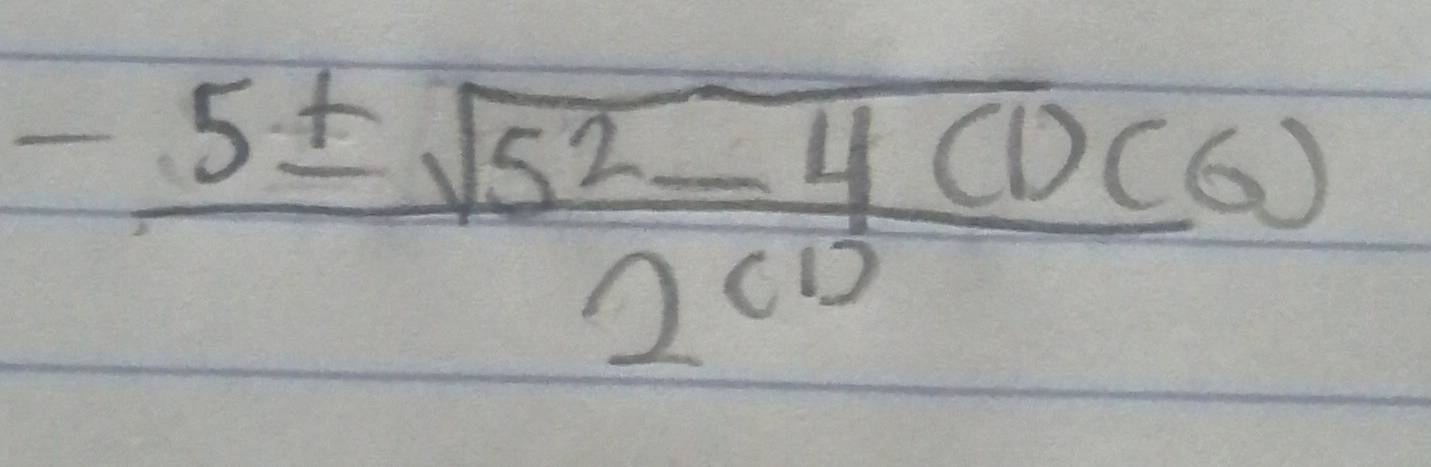 - 5 ± √5² - 4 (1) (6)
2 (1)